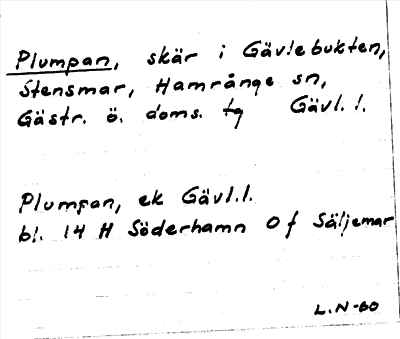 Plumpan, skär i Gävlebukten,
Stensmar, Hamrånge sn,
Gästr. ö. doms. tg Gävl. l.
Plumpan, ek Gävl.l.
bl. 14 H Söderhamn O f Säljemar
L.N-60